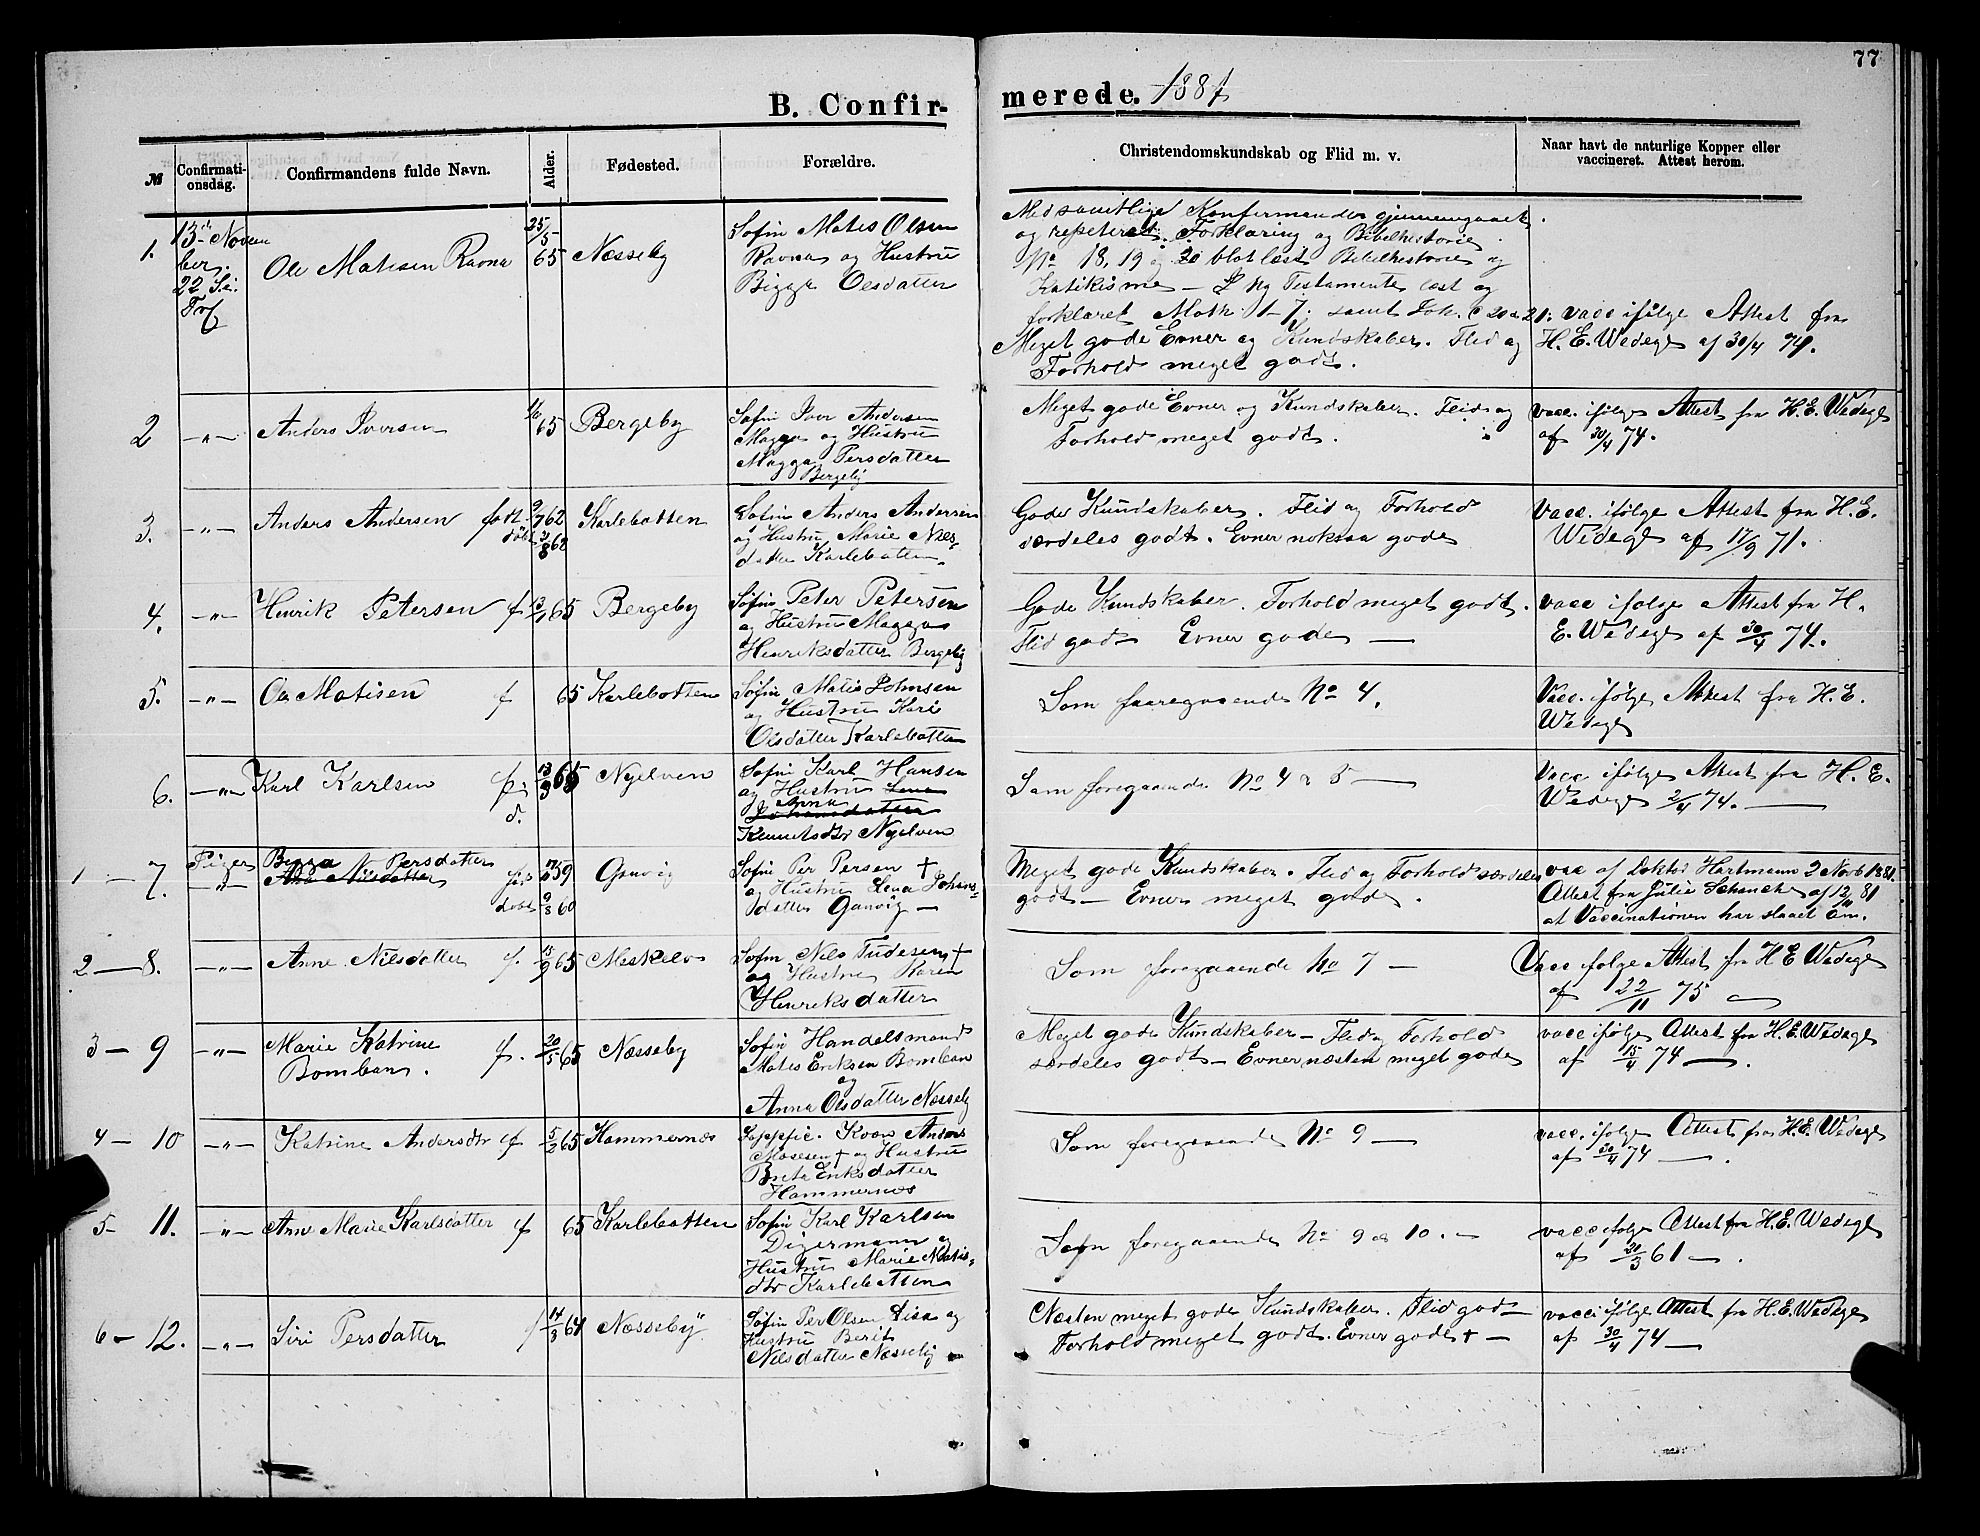 77
B. Confirmerede. 1881
№
Confirmationsdag.
Confirmandens fulde Navn.
Alder.
Fødested.
Forældre.
Christendomskundskab og Flid m. v.
Naar havt de naturlige Kopper eller vaccineret. Attest herom.
1.
13de November
22 S. e.
Tref
Ole Matisen Ravna
25/5 65
Næsseby
Søfin Matis Olsen
Ravna og Hustru
Bigga Olsdatter
Med samtlige Konfirmander gjennemgaaet
og repeteret. Forklaring og Bibelhistorie
No 18, 19 og 20 blot læst Bibelhistorie og
Katikisme — I Ny Testamente læst og
forklaret Math. 1-7. samt Joh. C 20 & 21.
Meget gode Evner og Kundskaber. Flid og
Forhold meget godt.
vacc ifølge Attest fra
H. E. Wedege af 30/4 74.
2
—"—
Anders Iversen
65
Bergeby
Søfin Iver Andersen
Magga og Hustru
Magga Persdatter
Bergeby
Meget gode Evner og Kundskaber. Flid og
Forhold meget godt.
vacc. ifølge Attest fra H. E. Wedege
af 30/4 74.
3.
—"—
Anders Andersen født
døbt
9/7 62
3/8 62
Karlebotten
Søfin Anders Andersen
og Hustru Marie Niels-
datter Karlebotten.
Gode Kundskaber. Flid og Forhold
særdeles godt. Evner noksaa gode
Vacc. ifølge Attest fra H. E.
Wedege af 17/9 71.
4.
—"—
Henrik Petersen f
13/1 65
Bergeby
Søfin Peter Petersen
og Hustru Magga
Henriksdatter Bergeby
Gode Kundskaber. Forhold meget godt.
Flid god Evner gode —
vacc ifølge Attest fra H.
E. Wedege af 30/4 74.
5.
—"—
Ole Matisen f
65
Karlebotten
Søfin Matis Johnsen
og Hustru Kari
Olsdatter Karlebotten
Som foregaaende No 4.
Vacc. ifølge Attest fra H. E.
Wedege
6.
—"—
Karl Karlsen f.
d.
13/3 65
Nyelven
Søfin Karl Hansen
og Hustru Lena
Anna
Johansdatter
Klemetsdtr Nyelven
Som foregaaende No 4 & 5 —
Vacc ifølge Attest fra H. E.
Wedege 2/4 74. —
1 — 7.
Piger
—"—
Bigga Persdatter
Ane Nilsdatter
født
døbt
59
9/3 60
Ganvig
Søfin Per Persen †
og Hustru Lena Johans-
datter Ganvig —
Meget gode Kundskaber. Flid og Forhold særdeles
godt — Evner meget gode.
vacc af Doktor Hartmann 2 Novb 1881.
Attest fra Julie Schanche af 12/11 81
at Vaccinationen har slaaet an.
2 — 8.
—"—
Anne Nilsdatter f.
15/9 65
Meskelv
Søfin Nils Tudesen †
og Hustru Karen
Henriksdatter
Som foregaaende No 7 —
Vacc ifølge Attest fra H E Wedege
af 22/11 75
3 — 9
—"—
Marie Katrine f.
Bomban.
20/5 65
Næsseby
Søfin Handelsmand
Matis Eriksen Bomban
og
Anna Olsdatter Næsseby
Meget gode Kundskaber — Flid og Forhold
særdeles godt — Evner næsten meget gode
vacc ifølge Attest fra H. E. Wedege
af 15/4 74 —.
4 — 10
—"—
Katrine Andersdtr f
5/2 65
Hammernæs
Søppfie. Kvæn Anders
Mosesen † og Hustru
Breta Eriksdatter
Hammernæs
Som foregaaende No 9 —
vacc. ifølge Attest fra H. E. Wedege
af 30/4 74 —.
5 — 11.
—"—
Ane Marie Karlsdatter f
65
Karlebotten
Søfin Karl Karlsen
Digermann og
Hustru Marie Matis-
dtr Karlebotten
Som foregaaende No 9 & 10. —
vacc ifølge Attest fra H. E. Wedege
af 30/3 61 —.
6 — 12.
—"—
Siri Persdatter f
14/3 64
Næsseby
Søfin Per Olsen Aisa og
Hustru Berit
Nilsdatter Næsseby
Næsten meget gode Kundskaber. Flid god —
Forhold meget godt. Evner gode + —
vacc ifølge Attest fra H. E. Wedege
af 30/4 74 —